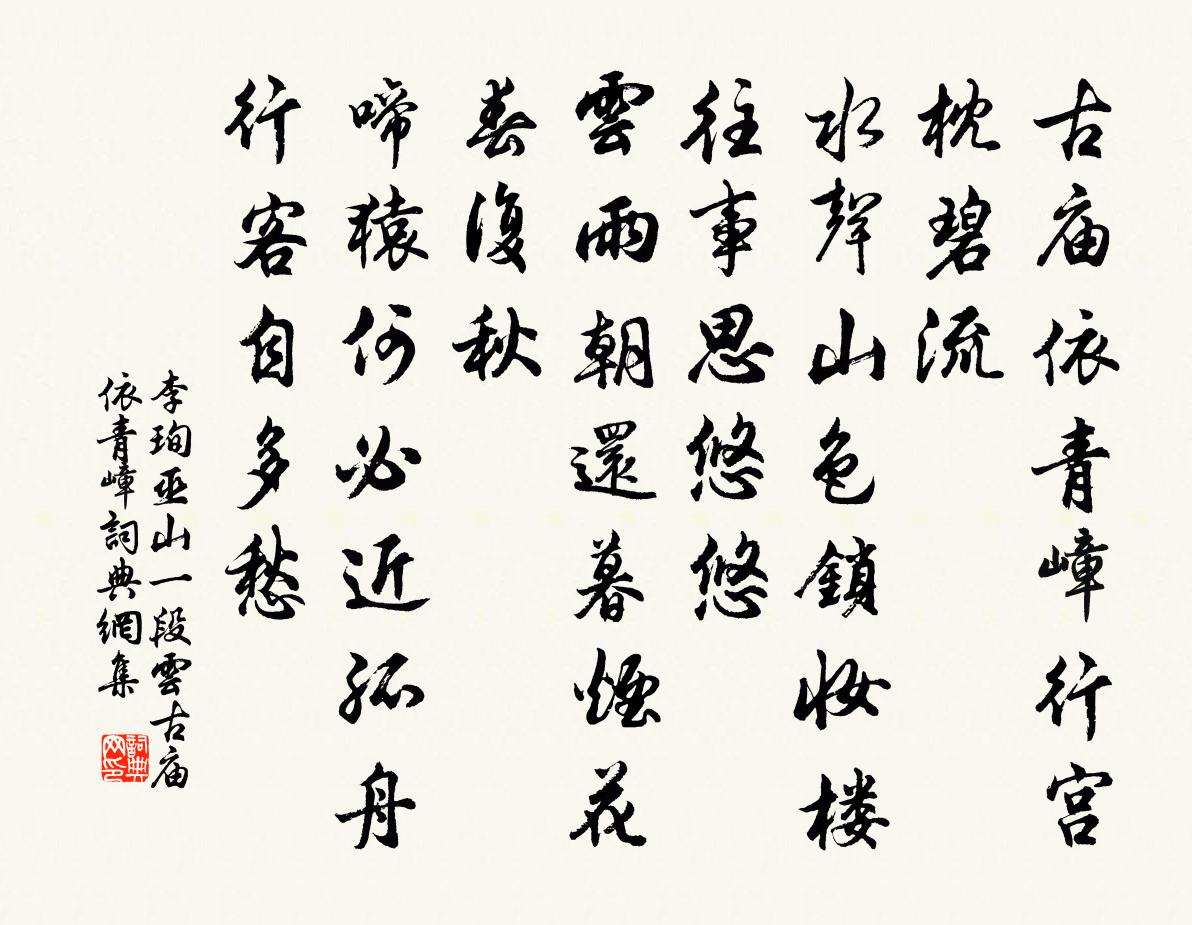 古庙依青嶂行宫
枕碧流
水聲山色鎖妆楼
往事思悠悠
雲雨朝還暮煙花
春復秋
啼猿何必近孤舟
行客自多愁
李珣巫山一段雲古庙
依青嶂詞典網集
詞典
网印